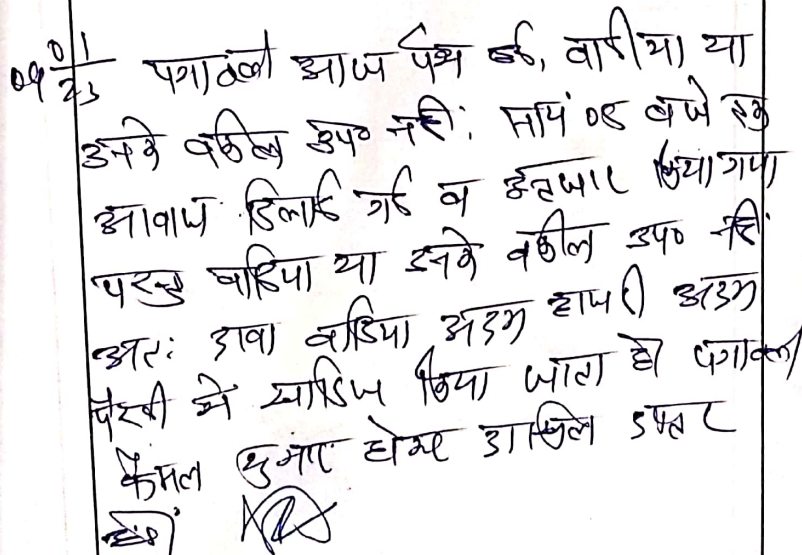 09/01/23 पत्रावली आज पेश हुई, वादीया या
उनके वकील उप० नहीं। सायं 05 बजे तक
आवाज दिलाई गई व इंतजार किया गया
परन्तु वादिया या उनके वकील उप० नहीं
अतः दावा वादिया अदम हाजरी अदम
पैरवी में खारिज किया जाता है पत्रावली
फैसल शुमार होकर दाखिल दफ्तर
हो।